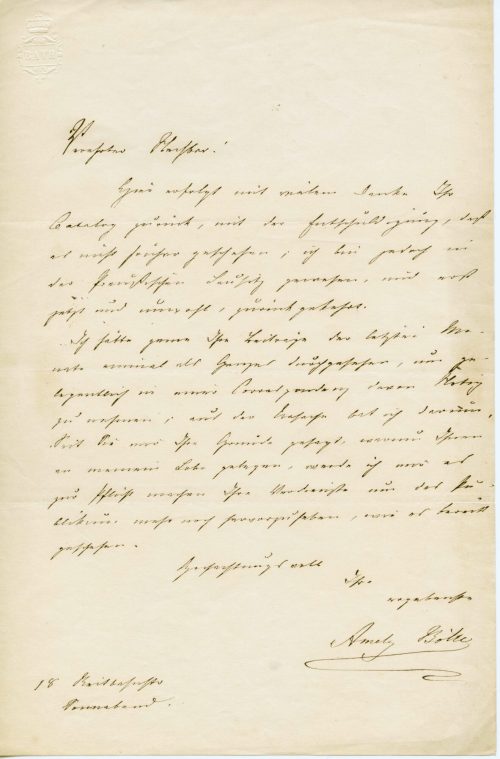 BATH
Verehrter Nachbar!
Hier erfolgt mit vielem Danke Ihr
Catalog zurück, mit der Entschuldigung, daß
es nicht früher geschehen; ich bin jedoch in
der Preußischen Lausitz gewesen, und erst
jetzt und unwohl, zurückgekehrt.
Ich hätte gerne Ihre Beiträge der letzten Mo-
nate einmal als Ganzes durchgesehen, um ge-
legentlich in einer Correspondenz davon Notiz
zu nehmen; aus der Ursache bat ich darum.
Seit Sie mir Ihre Gründe gesagt, warum Ihnen
an meinem Lobe gelegen, werde ich mir es
zur Pflicht machen Ihre Verdienste um das Pu-
blikum mehr noch hervorzuheben, wie es bereits
geschehen.
Hochachtungsvoll
Ihre
ergebenste
Amely Bölte
18
Sonnabend.